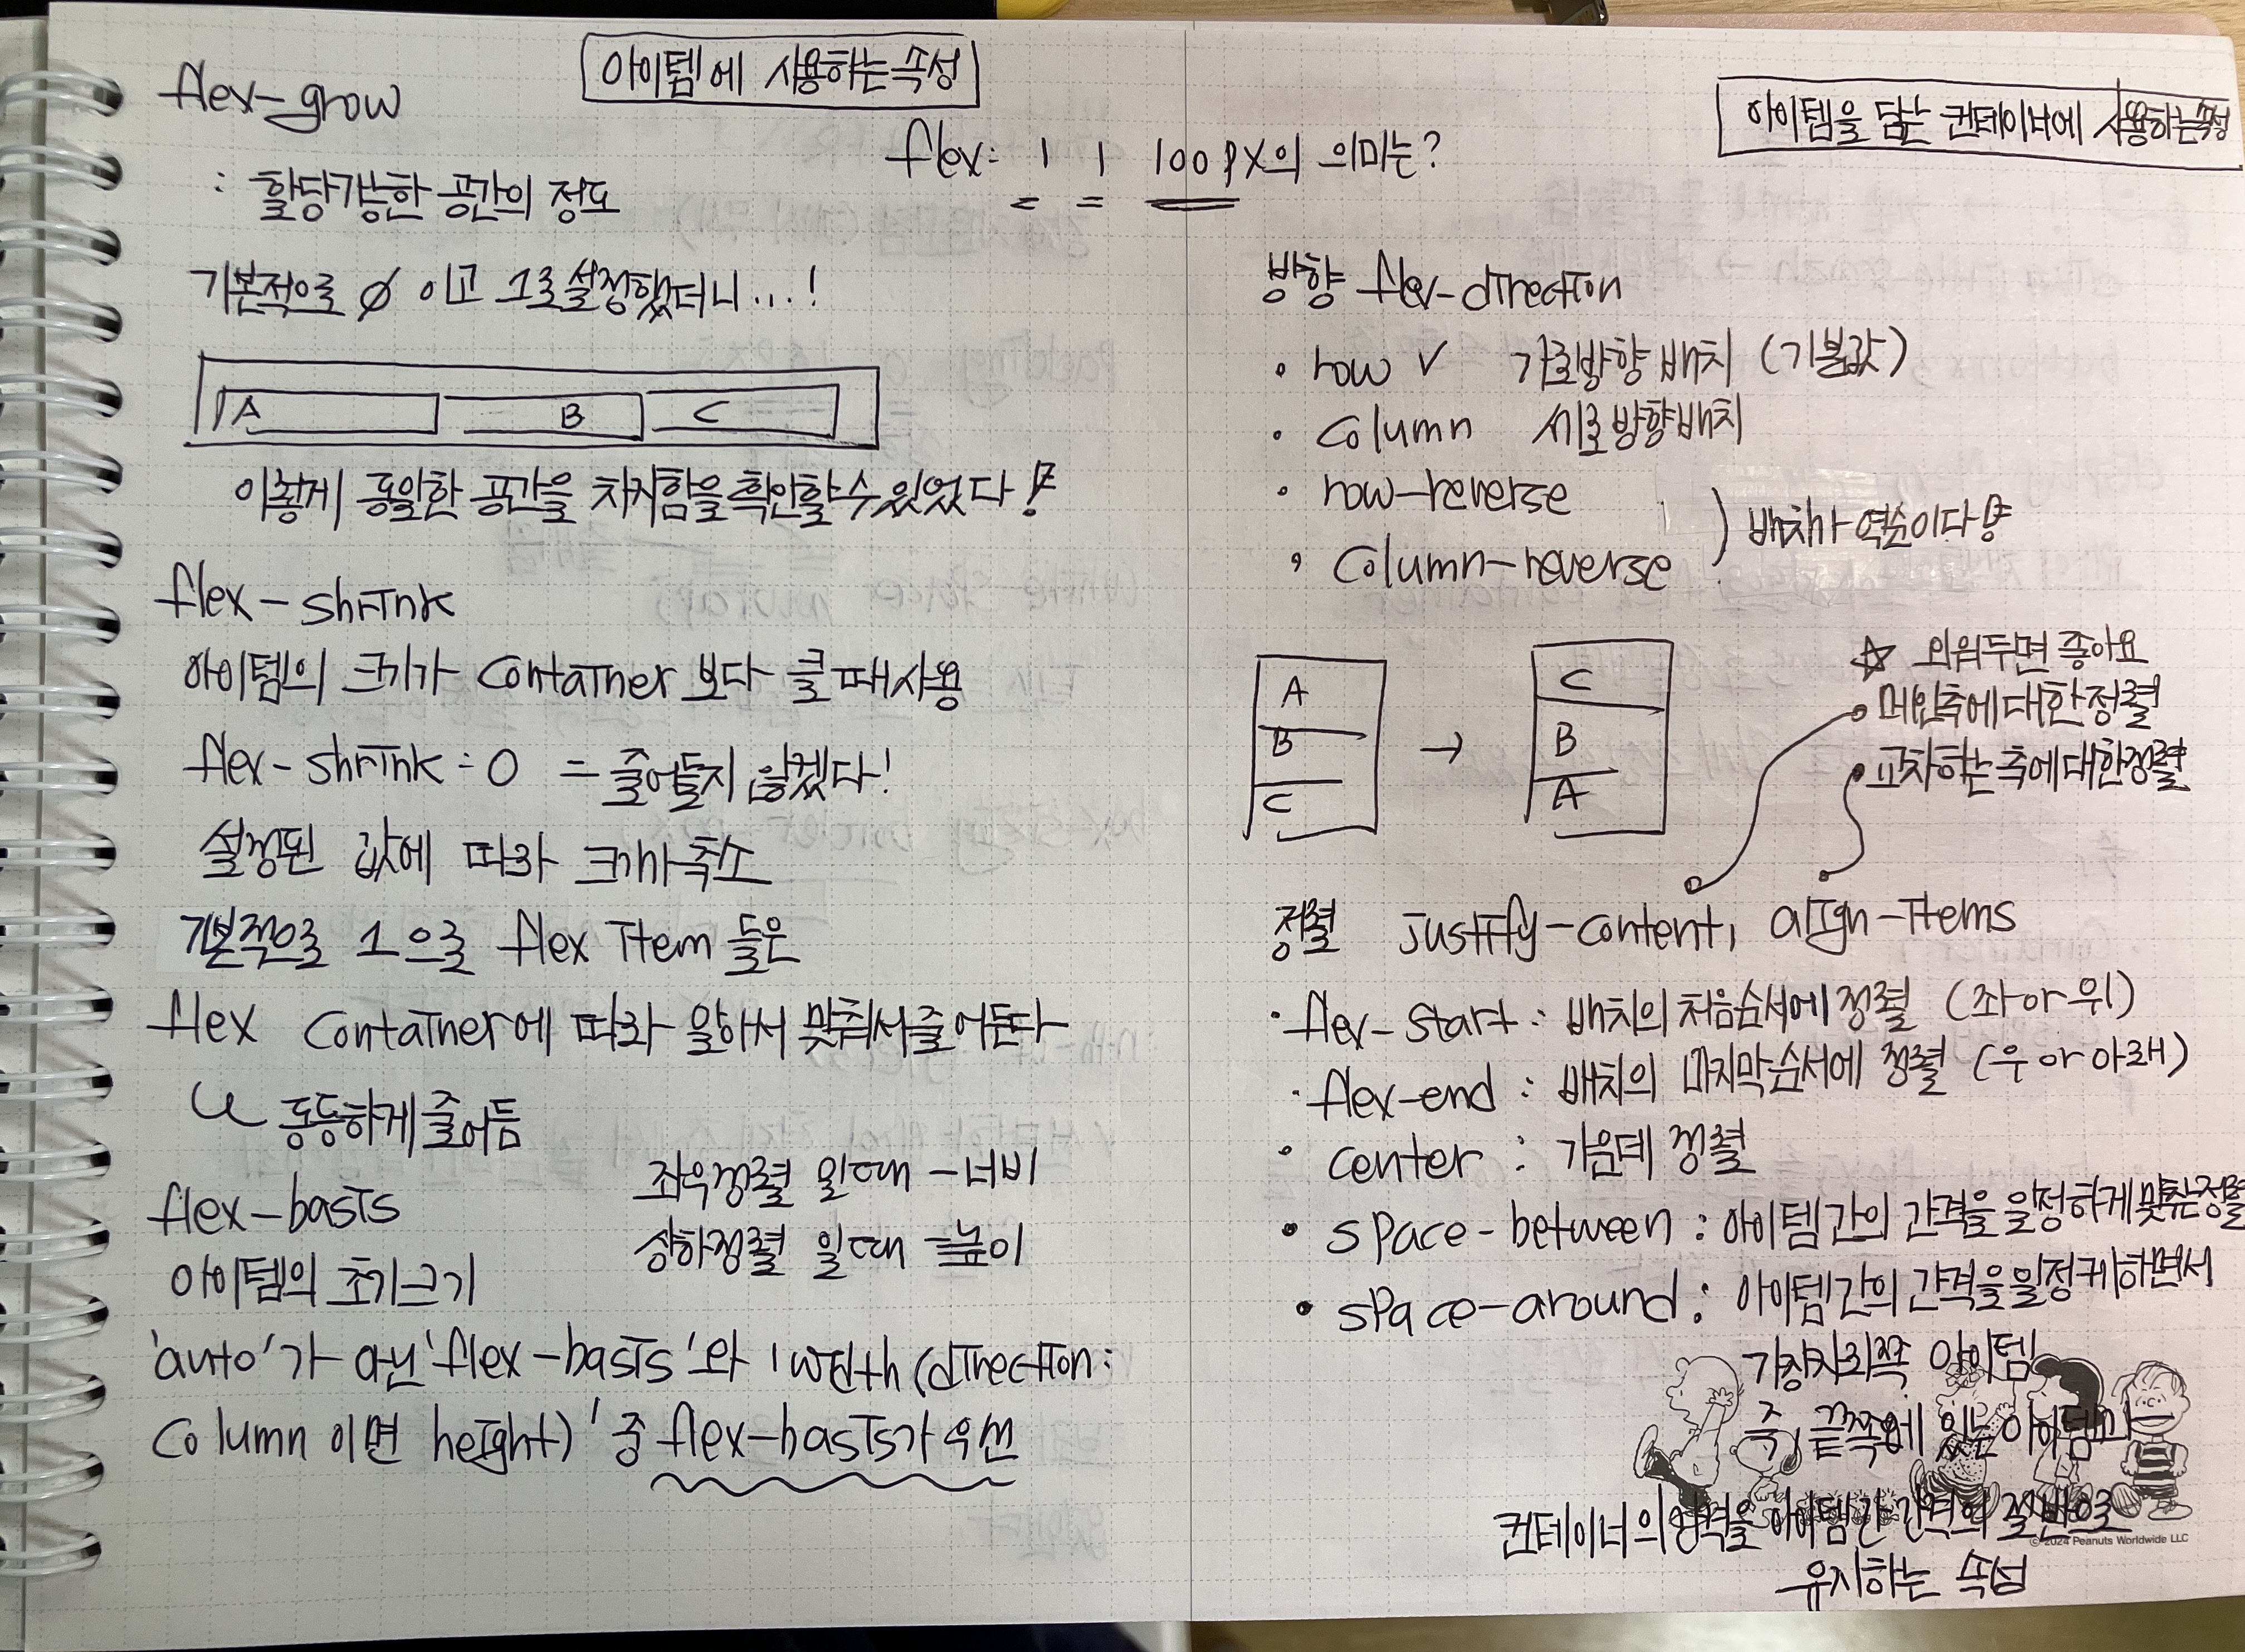 아이템에 사용하는 속성
flex-grow
: 할당가능한 공간의 정도
기본적으로 0 이고 1로 설정했더니...!
A B C
이렇게 동일한 공간을 차지함을 확인할 수 있었다!
flex-shrink
아이템의 크기가 container 보다 클 때 사용
flex-shrink : 0 = 줄어들지 않겠다!
설정된 값에 따라 크기가 축소
기본적으로 1 으로 flex item 들은
flex container에 따라 알아서 맞춰서 줄어든다
동등하게 줄어듬
flex-basis
좌우정렬 일때 - 너비
상하정렬 일때 - 높이
아이템의 초기크기
'auto'가 아닌 'flex-basis'와 'width (direction:
column 이면 height)' 중 flex-basis가 우선
flex: 1 1 100px의 의미는?
아이템을 담는 컨테이너에 사용하는 속성
방향 flex-direction
• row ✓ 가로방향 배치 (기본값)
• column 세로방향배치
• row-reverse
• column-reverse
) 배치가 역순이다
A
B
C
→
C
B
A
☆ 외워두면 좋아요
메인축에 대한 정렬
교차하는 축에 대한 정렬
정렬 justify-content, align-items
• flex-start : 배치의 처음순서에 정렬 (좌 or 위)
• flex-end : 배치의 마지막순서에 정렬 (우 or 아래)
• center : 가운데 정렬
• space-between : 아이템간의 간격을 일정하게 맞춘 정렬
• space-around : 아이템간의 간격을 일정케하면서
가장자리쪽 아이템
즉, 끝쪽에 있는 아이템과
컨테이너의 간격을 아이템간 간격의 절반으로
유지하는 속성
© 2024 Peanuts Worldwide LLC